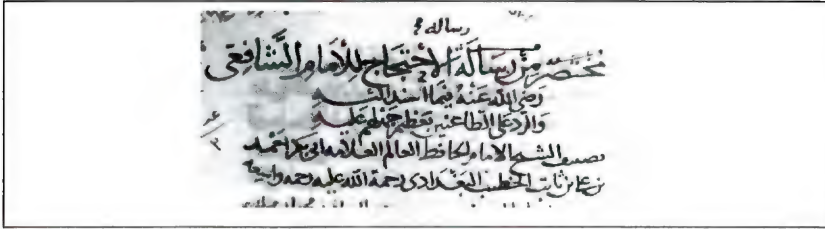 رساله
مختصر من رسالة الاحتجاج للامام الشافعى
رضى الله عنه فيما اسند اليه
والرد على الطاعنين بعظم جهلهم عليه
تصنيف الشيخ الامام الحافظ العالم العلامه ابى بكر احمد
بن على بن ثابت الخطيب البغدادى رحمة الله عليه رحمه واسعه